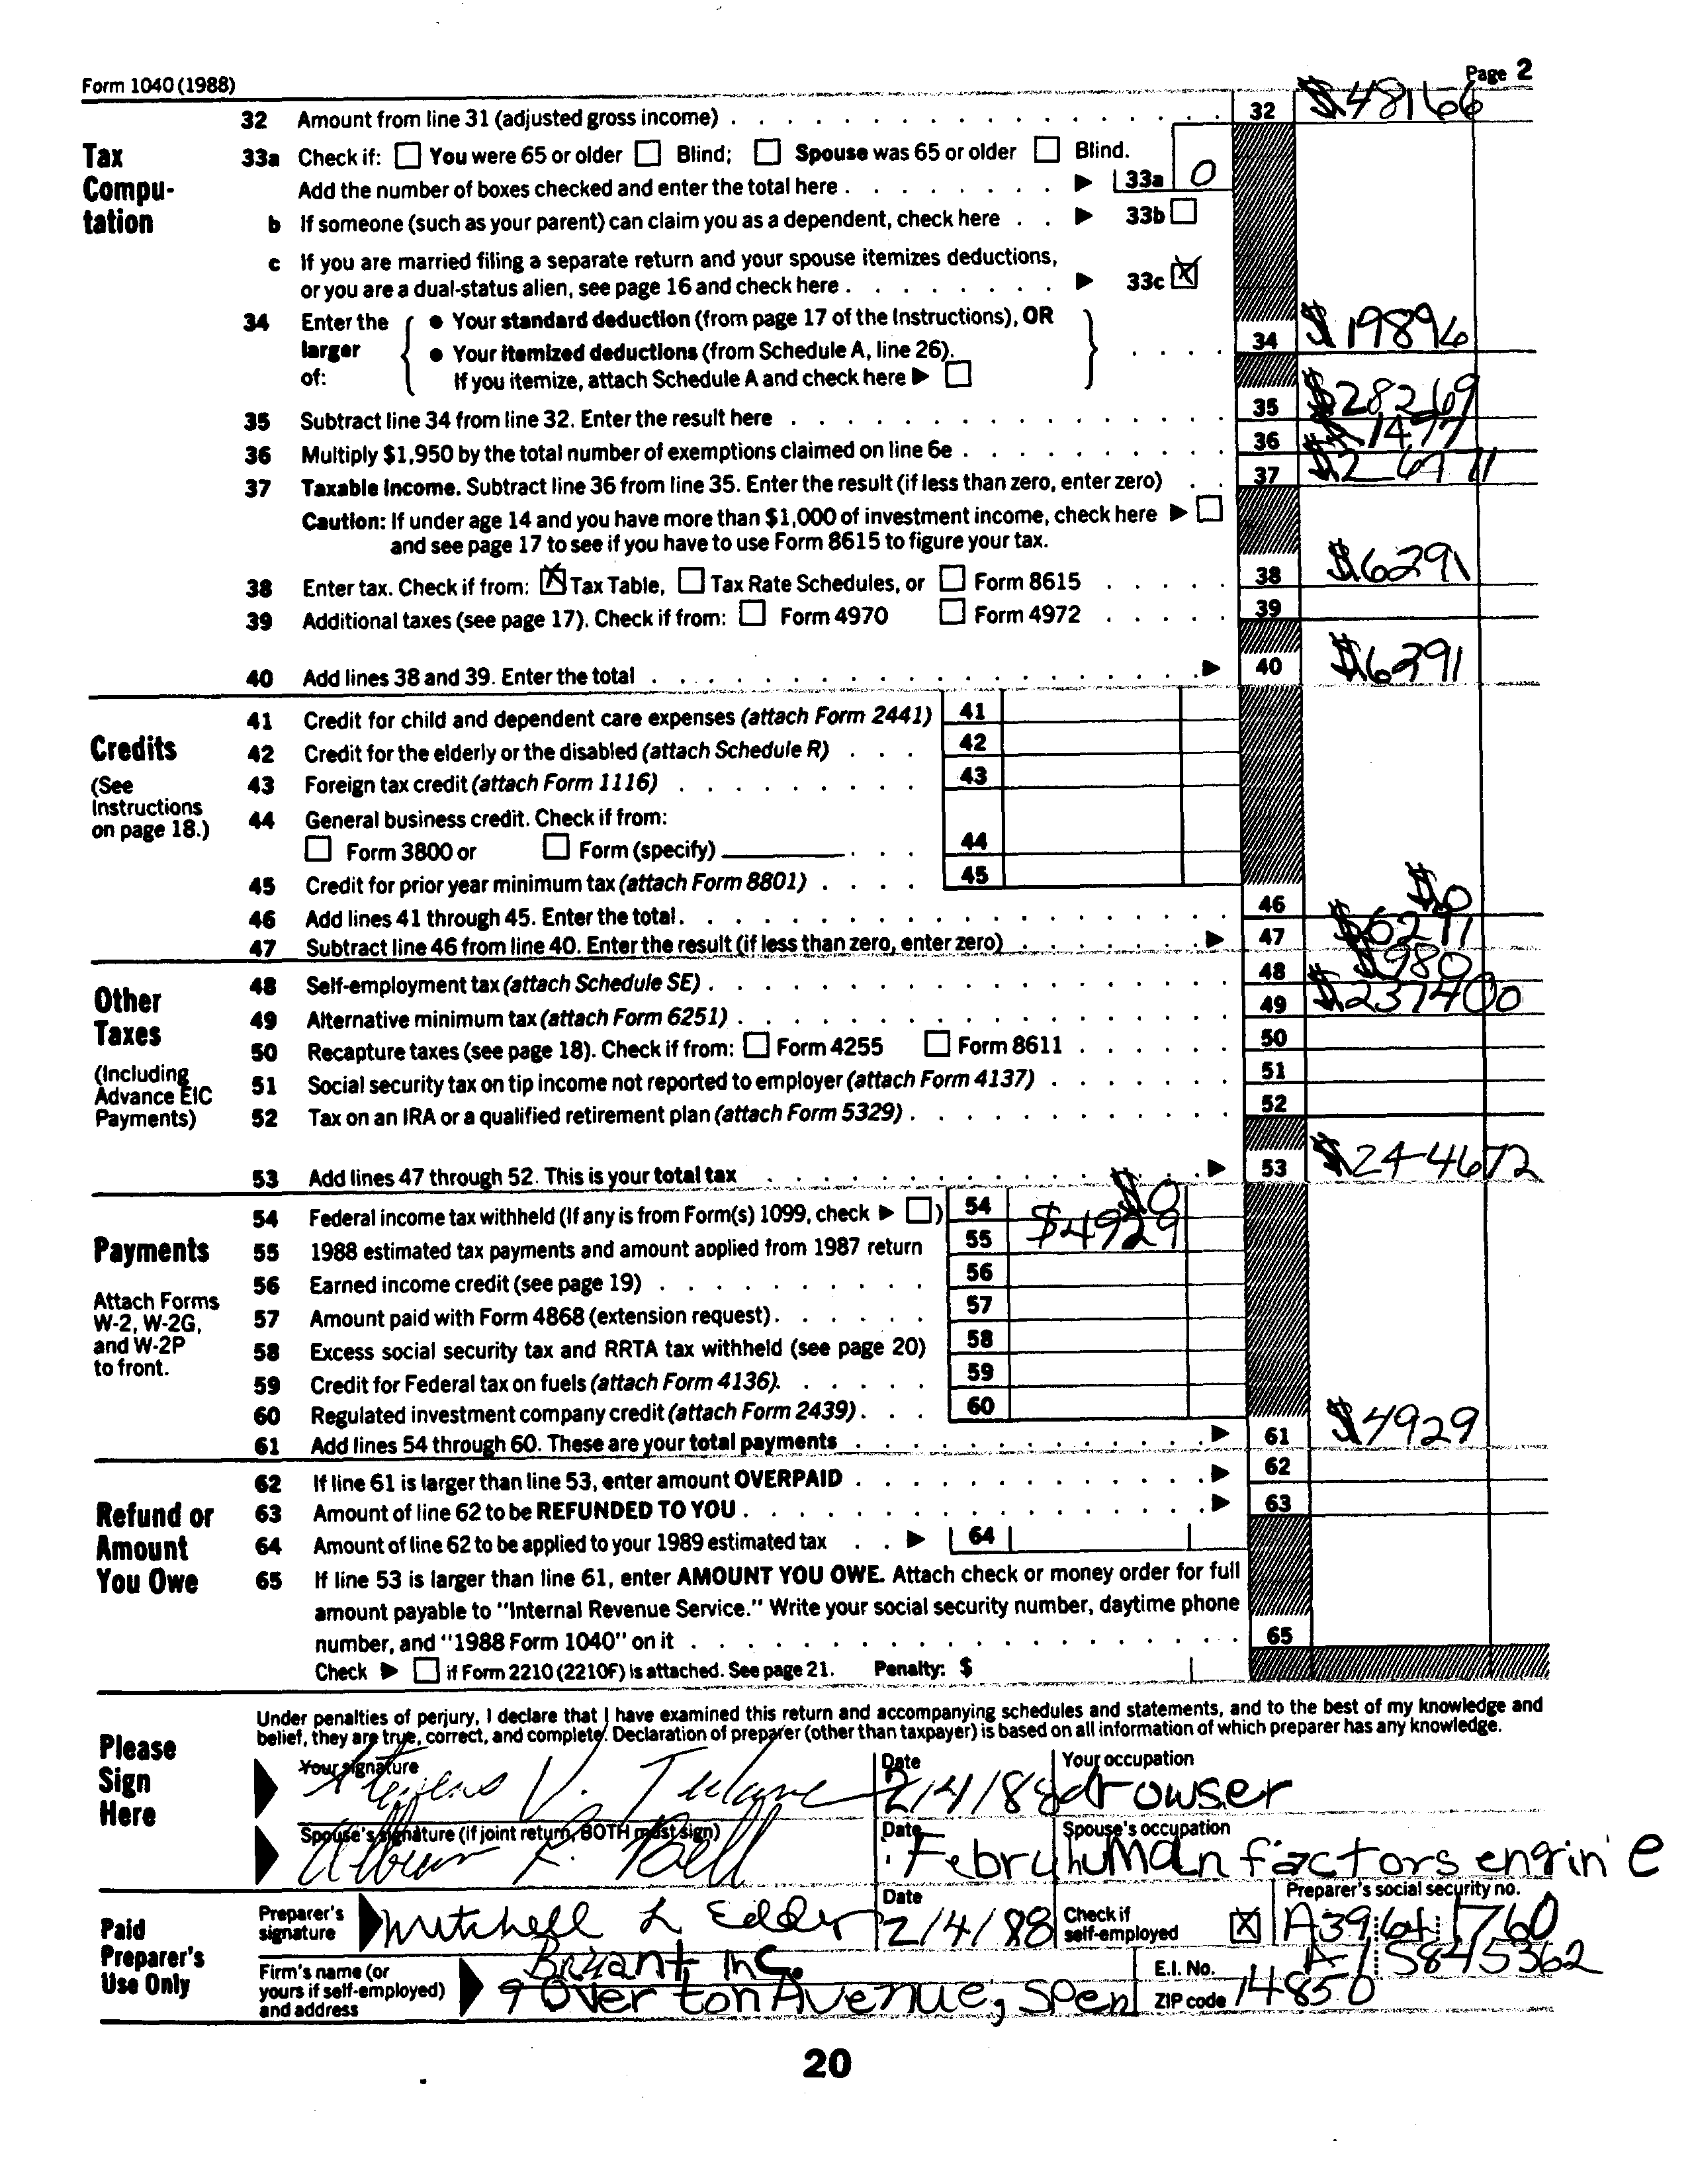 Form 1040 (1988)
Page 2
Tax Compu-tation
32 Amount from line 31 (adjusted gross income) 32 $48166
33a Check if: You were 65 or older Blind; Spouse was 65 or older Blind.
Add the number of boxes checked and enter the total here 33a 0
b If someone (such as your parent) can claim you as a dependent, check here 33b
c If you are married filing a separate return and your spouse itemizes deductions,
or you are a dual-status alien, see page 16 and check here 33c X
34 Enter the larger of:
• Your standard deduction (from page 17 of the Instructions), OR
• Your itemized deductions (from Schedule A, line 26).
If you itemize, attach Schedule A and check here
34 $19896
35 Subtract line 34 from line 32. Enter the result here 35 $28269
36 Multiply $1,950 by the total number of exemptions claimed on line 6e 36 $1477
37 Taxable income. Subtract line 36 from line 35. Enter the result (if less than zero, enter zero) 37
Caution: If under age 14 and you have more than $1,000 of investment income, check here
and see page 17 to see if you have to use Form 8615 to figure your tax.
38 Enter tax. Check if from: X Tax Table, Tax Rate Schedules, or Form 8615 38 $6291
39 Additional taxes (see page 17). Check if from: Form 4970 Form 4972 39
40 Add lines 38 and 39. Enter the total 40 $6291
Credits
(See Instructions on page 18.)
41 Credit for child and dependent care expenses (attach Form 2441) 41
42 Credit for the elderly or the disabled (attach Schedule R) 42
43 Foreign tax credit (attach Form 1116) 43
44 General business credit. Check if from:
Form 3800 or Form (specify) 44
45 Credit for prior year minimum tax (attach Form 8801) 45
46 Add lines 41 through 45. Enter the total. 46 $0
47 Subtract line 46 from line 40. Enter the result (if less than zero, enter zero) 47 $6291
Other Taxes
(Including Advance EIC Payments)
48 Self-employment tax (attach Schedule SE) 48 $980
49 Alternative minimum tax (attach Form 6251) 49 $237400
50 Recapture taxes (see page 18). Check if from: Form 4255 Form 8611 50
51 Social security tax on tip income not reported to employer (attach Form 4137) 51
52 Tax on an IRA or a qualified retirement plan (attach Form 5329) 52
53 Add lines 47 through 52. This is your total tax 53 $244672
Payments
Attach Forms W-2, W-2G, and W-2P to front.
54 Federal income tax withheld (If any is from Form(s) 1099, check ) 54 $0
55 1988 estimated tax payments and amount applied from 1987 return 55 $4929
56 Earned income credit (see page 19) 56
57 Amount paid with Form 4868 (extension request) 57
58 Excess social security tax and RRTA tax withheld (see page 20) 58
59 Credit for Federal tax on fuels (attach Form 4136). 59
60 Regulated investment company credit (attach Form 2439) 60
61 Add lines 54 through 60. These are your total payments 61 $4929
Refund or Amount You Owe
62 If line 61 is larger than line 53, enter amount OVERPAID 62
63 Amount of line 62 to be REFUNDED TO YOU 63
64 Amount of line 62 to be applied to your 1989 estimated tax 64
65 If line 53 is larger than line 61, enter AMOUNT YOU OWE. Attach check or money order for full
amount payable to "Internal Revenue Service." Write your social security number, daytime phone
number, and "1988 Form 1040" on it 65
Check if Form 2210 (2210F) is attached. See page 21. Penalty: $
Please Sign Here
Under penalties of perjury, I declare that I have examined this return and accompanying schedules and statements, and to the best of my knowledge and
belief, they are true, correct, and complete. Declaration of preparer (other than taxpayer) is based on all information of which preparer has any knowledge.
Your signature
Date 2/4/88
Your occupation drowser
Spouse's signature (if joint return, BOTH must sign)
Date Febry
Spouse's occupation human factors engin e
Paid Preparer's Use Only
Preparer's signature Mitchell L Edder
Date 2/4/88
Check if self-employed X
Preparer's social security no. A39 64 1760
Firm's name (or yours if self-employed) and address
Bryant Inc.
9 Overton Avenue, Spen
E.I. No. A-15845362
ZIP code 14850
20